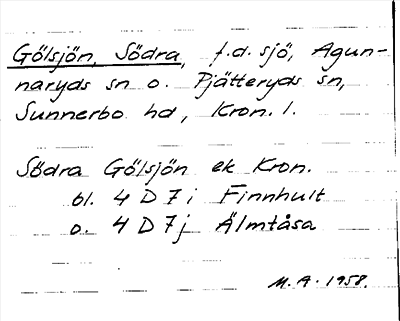 Gölsjön, Södra, f.d. sjö, Agun-
naryds sn o. Pjätteryds sn,
Sunnerbo hd, Kron. l.
Södra Gölsjön ek Kron.
bl. 4 D 7 i Finnhult
o. 4 D 7 j Älmtåsa
M.A. 1958.